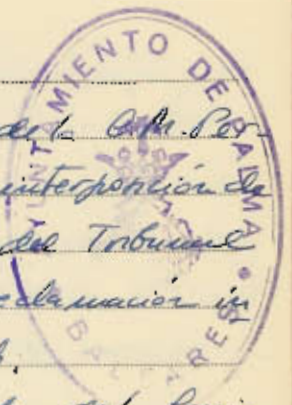 AYUNTAMIENTO DE PALMA
BALEARES
de la C.M. Per-
interposición de
del Tribunal
reclamación in